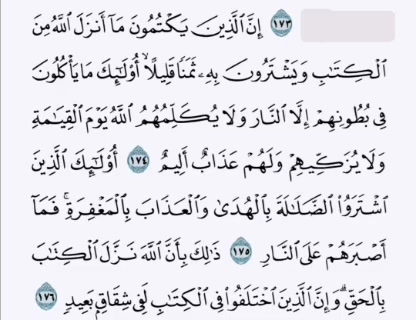 ١٧٣ إِنَّ ٱلَّذِينَ يَكْتُمُونَ مَآ أَنزَلَ ٱللَّهُ مِنَ
ٱلْكِتَٰبِ وَيَشْتَرُونَ بِهِۦ ثَمَنًا قَلِيلًا ۙ أُو۟لَٰٓئِكَ مَا يَأْكُلُونَ
فِى بُطُونِهِمْ إِلَّا ٱلنَّارَ وَلَا يُكَلِّمُهُمُ ٱللَّهُ يَوْمَ ٱلْقِيَٰمَةِ
وَلَا يُزَكِّيهِمْ وَلَهُمْ عَذَابٌ أَلِيمٌ ١٧٤ أُو۟لَٰٓئِكَ ٱلَّذِينَ
ٱشْتَرَوُا۟ ٱلضَّلَٰلَةَ بِٱلْهُدَىٰ وَٱلْعَذَابَ بِٱلْمَغْفِرَةِ ۚ فَمَآ
أَصْبَرَهُمْ عَلَى ٱلنَّارِ ١٧٥ ذَٰلِكَ بِأَنَّ ٱللَّهَ نَزَّلَ ٱلْكِتَٰبَ
بِٱلْحَقِّ ۗ وَإِنَّ ٱلَّذِينَ ٱخْتَلَفُوا۟ فِى ٱلْكِتَٰبِ لَفِى شِقَاقٍۭ بَعِيدٍ ١٧٦